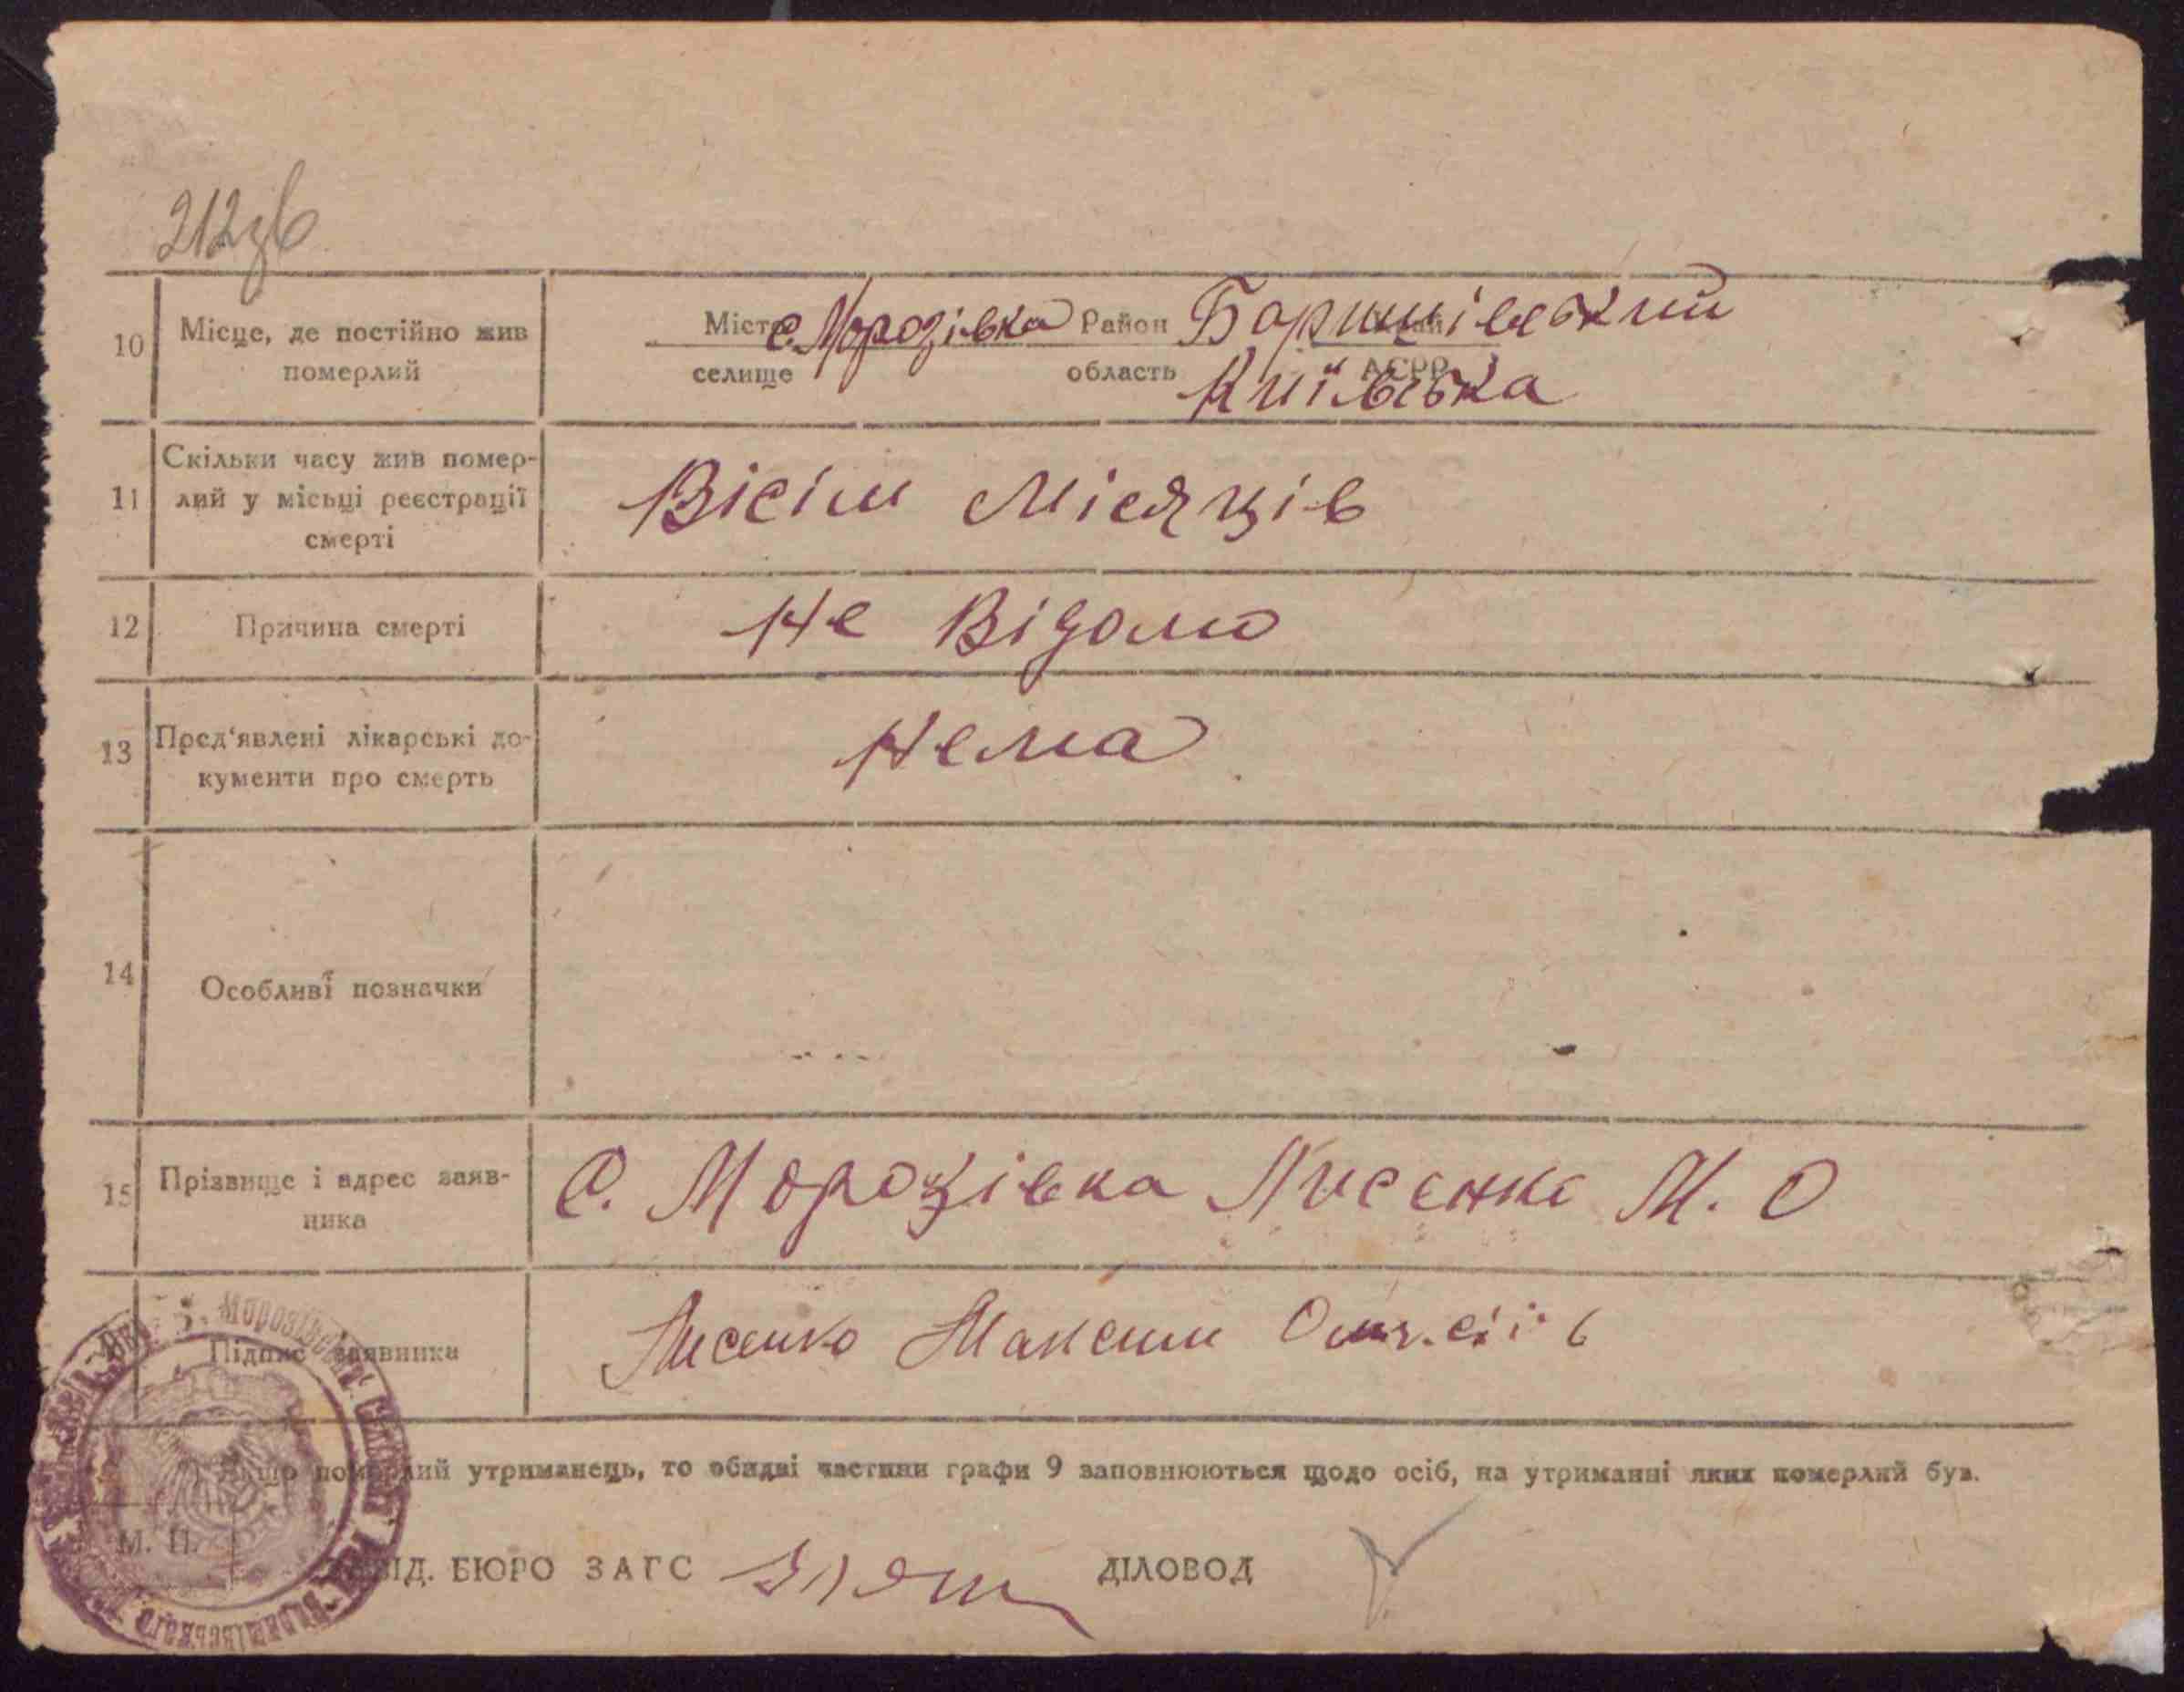 10 Місце, де постійно жив Місто с. Морозівка Район Боришівський
померлий селище область АСРР Київська
Скільки часу жив помер-
11 лий у місьці реєстрації Вісім Місяців
смерті
12 Причина смерті Не Відомо
13 Пред'явлені лікарські до- Нема
кументи про смерть
14 Особливі позначки
15 Прізвище і адрес заяв- С. Морозівка Лисенко М. О
ника
Підпис заявника Лисенко Максим
Якщо померлий утриманець, то обидві частини графи 9 заповнюються щодо осіб, на утриманні яких померлий був.
М. П.
ЗАВІД. БЮРО ЗАГС ДІЛОВОД